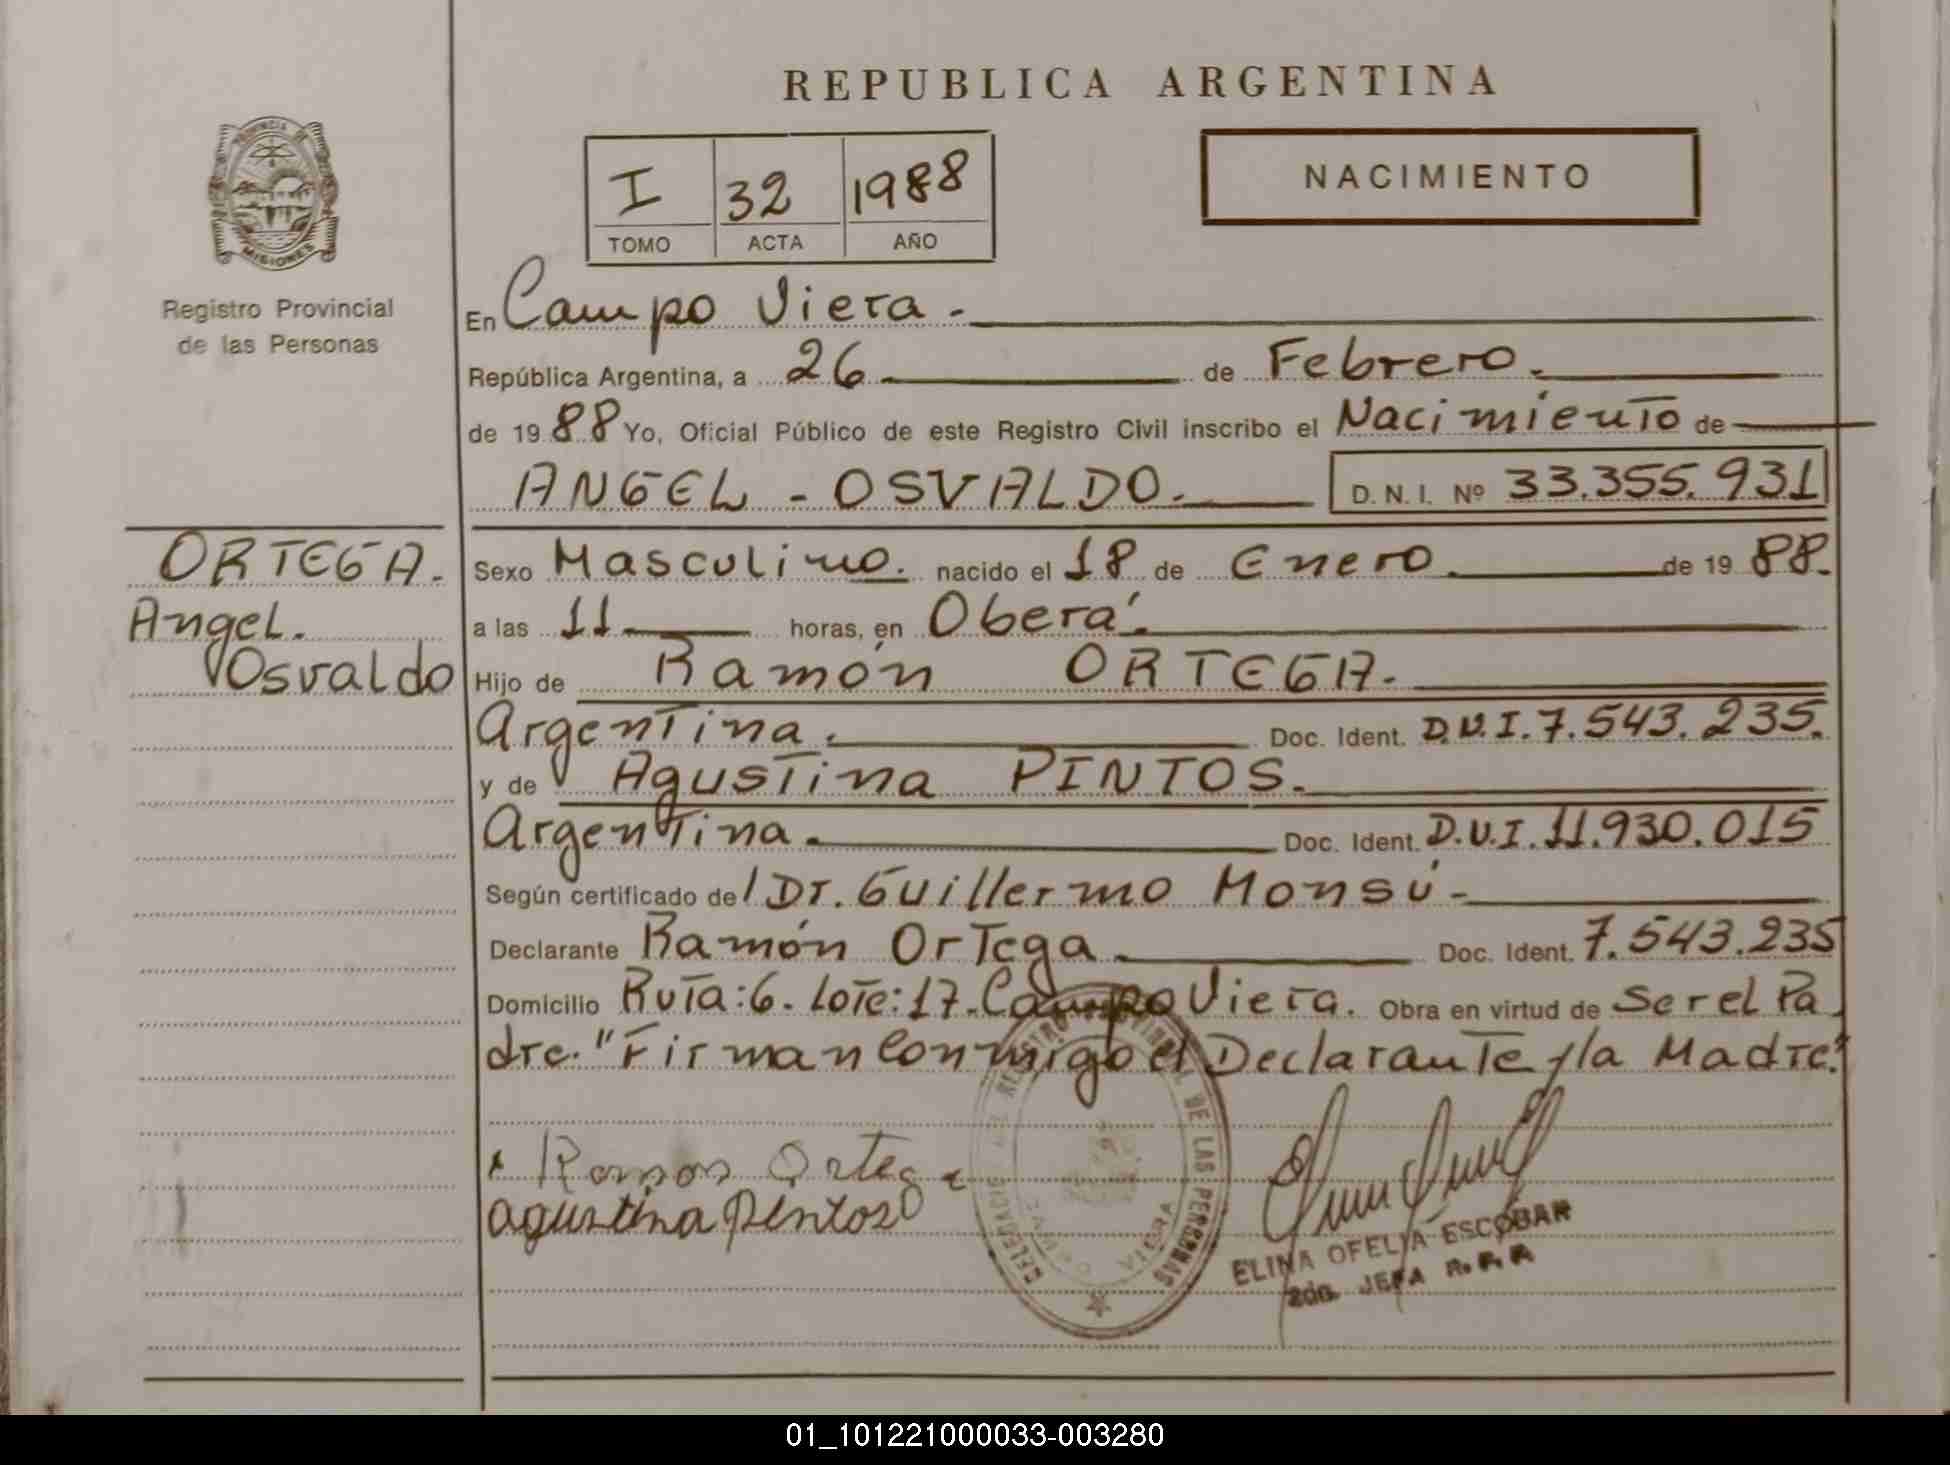 REPUBLICA ARGENTINA
PROVINCIA DE MISIONES
I 32 1988
TOMO ACTA AÑO
NACIMIENTO
Registro Provincial
de las Personas
En Campo Viera.
República Argentina, a 26 de Febrero.
de 1988 Yo, Oficial Público de este Registro Civil inscribo el Nacimiento de
ANGEL - OSVALDO. D. N. I. Nº 33.355.931
ORTEGA.
Angel.
Osvaldo
Sexo Masculino. nacido el 18 de Enero. de 1988.
a las 11 horas, en Oberá.
Hijo de Ramón ORTEGA.
Argentina. Doc. Ident. D.N.I. 7.543.235.
y de Agustina PINTOS.
Argentina. Doc. Ident. D.N.I. 11.930.015
Según certificado del Dr. Guillermo Monsú-
Declarante Ramón Ortega Doc. Ident. 7.543.235
Domicilio Ruta:6. Lote:17. Campo Viera. Obra en virtud de Ser el Pa
dre. "Firman Conmigo el Declarante y la Madre."
Ramon Ortega
agustina pintos
REGISTRO PROVINCIAL DE LAS PERSONAS
CAMPO VIERA
ELINA OFELIA ESCOBAR
2da. JEFA R. P. P.
01_101221000033-003280